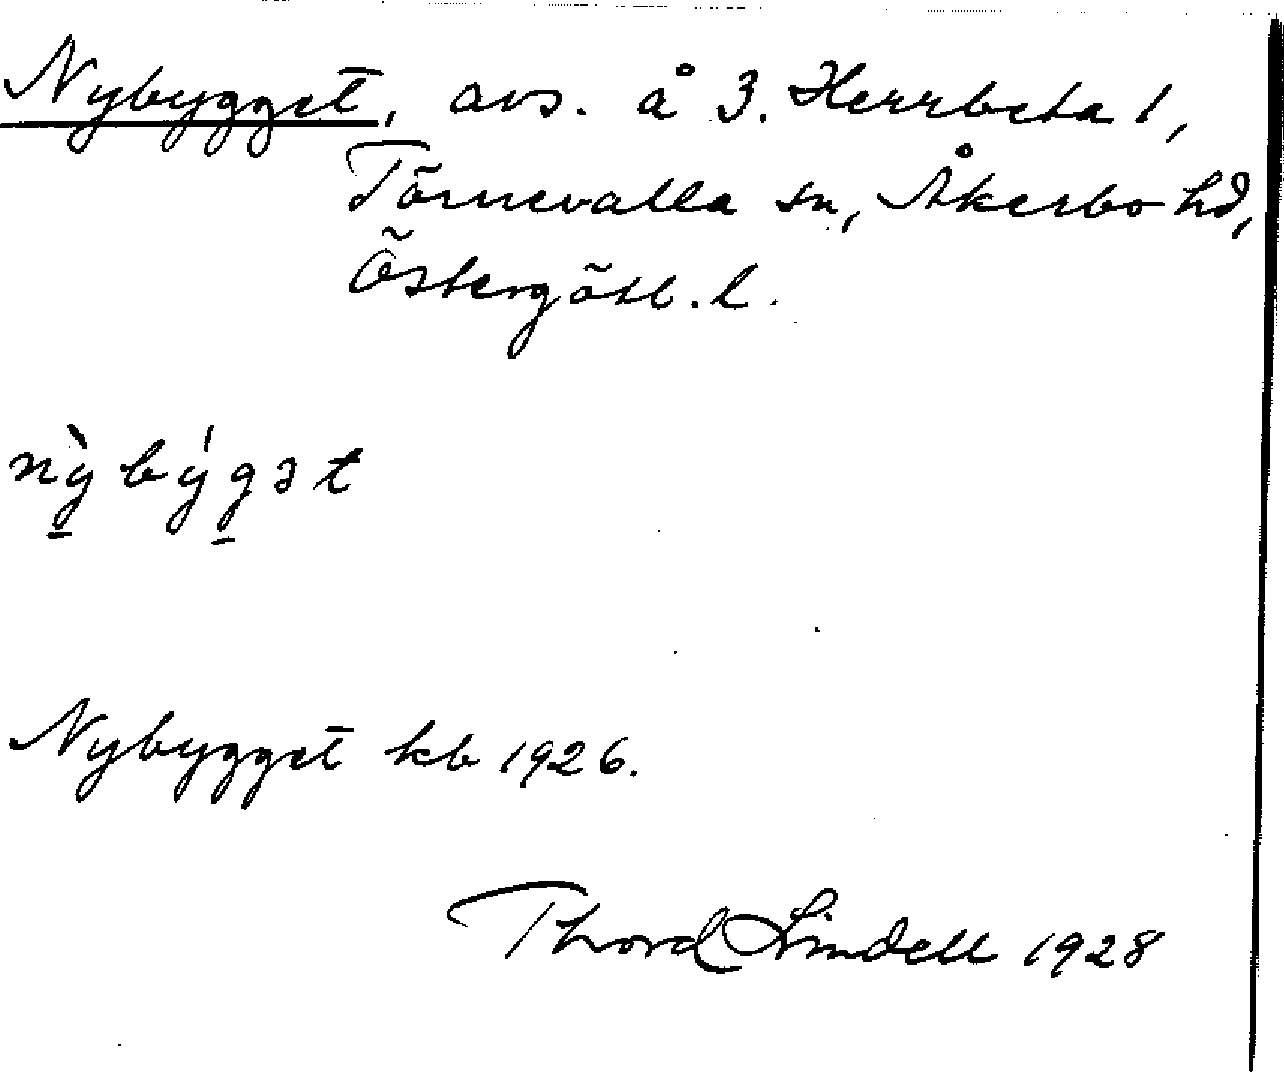 Nybygget, avs. å 3. Herrbeta 1,
Törnevalla sn, Åkerbo hd,
Östergötl. l.
nỳ̱býg̱ət
Nybygget kb 1926.
Thord Lindell 1928